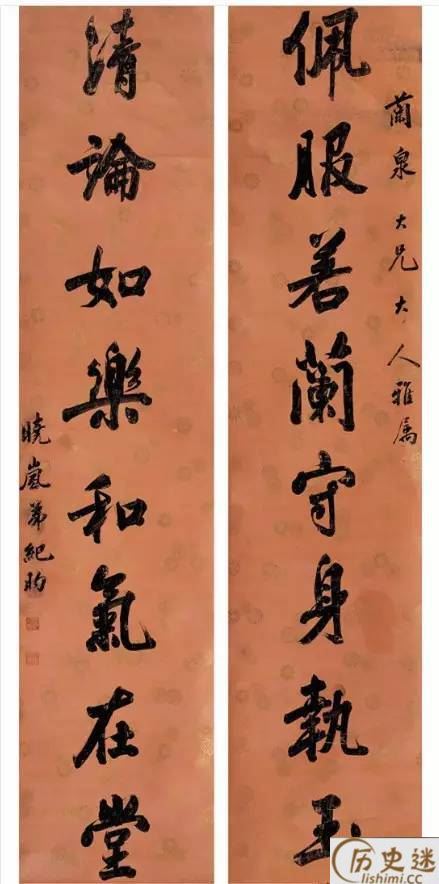 蘭泉大兄大人雅属
佩服若蘭守身執玉
清論如樂和氣在堂
曉嵐弟紀昀
历史迷
lishimi.cc